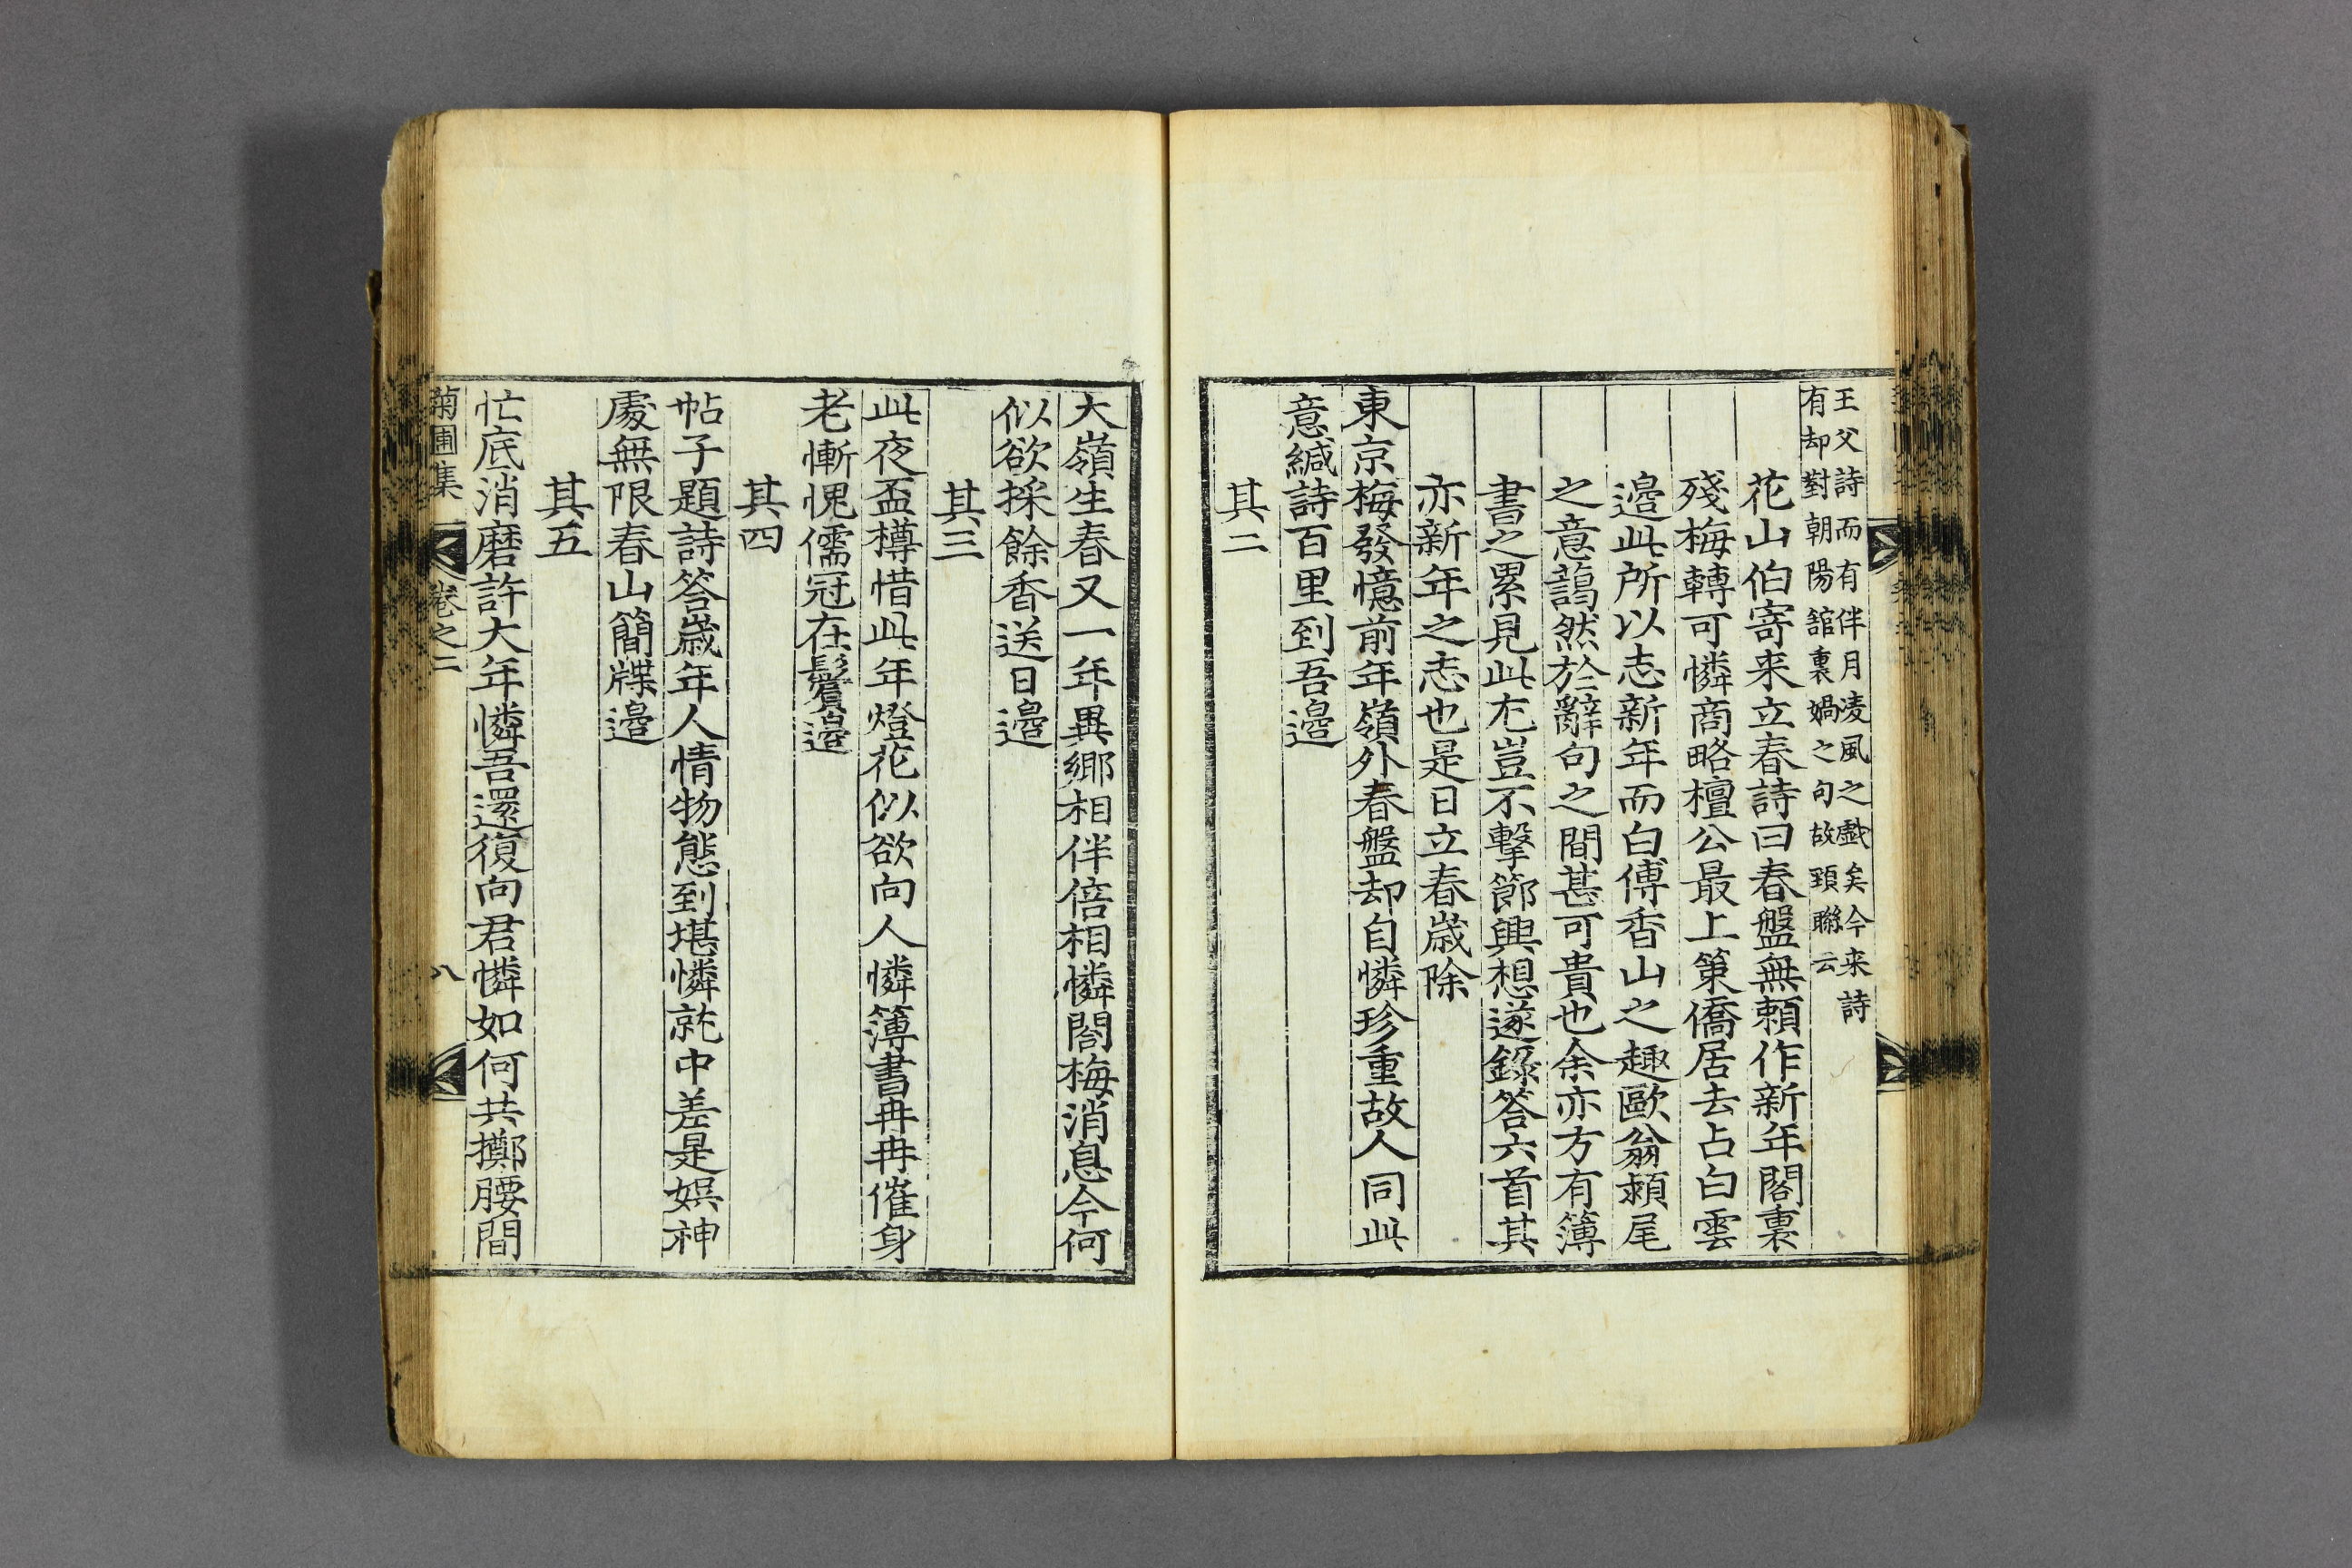 王父詩而有伴月凌風之戱矣今来詩
有却對朝陽舘裏媧之句故頚聯云
花山伯寄来立春詩曰春盤無賴作新年閣裏
殘梅轉可憐商略檀公最上策僑居去占白雲
邉此所以志新年而白傅香山之趣歐翁潁尾
之意藹然於辭句之間甚可貴也余亦方有簿
書之累見此尤豈不擊節興想遂錄答六首其
亦新年之志也是日立春歲除
東京梅發憶前年嶺外春盤却自憐珍重故人同此
意緘詩百里到吾邉
其二
大嶺生春又一年異鄉相伴倍相憐閤梅消息今何
似欲採餘香送日邉
其三
此夜盃樽惜此年燈花似欲向人憐簿書冉冉催身
老慚愧儒冠在鬢邉
其四
帖子題詩答歲年人情物態到堪憐就中差是娯神
處無限春山簡牒邉
其五
忙底消磨許大年憐吾還復向君憐如何共擲腰間
菊圃集 卷之二 八